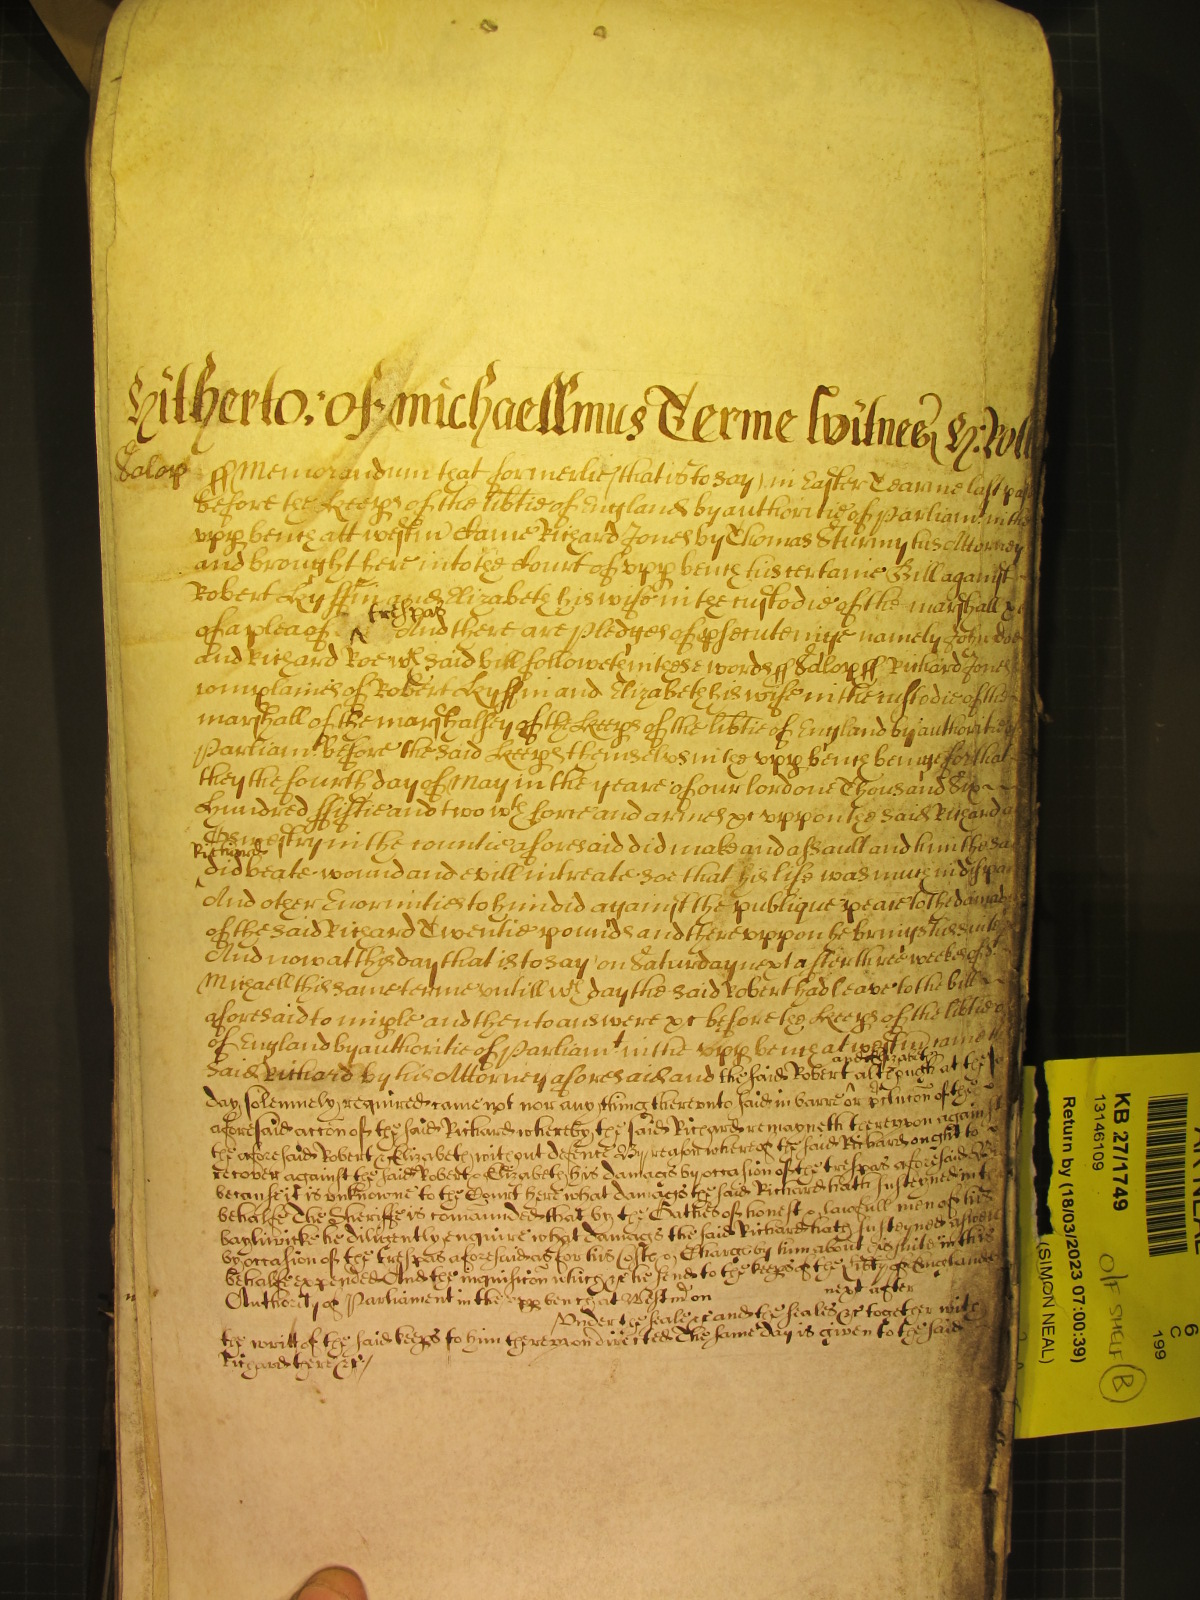 Hitherto: of Michaellmus Terme Witnes H: Roll
Salop ff Memorandum that formerlie (that is to say) in Easter Tearme last past
before the Keeps of the libtie of England by authoritie of Parliamt in the
vpp bench att Westmr Came Richard Jones by Thomas Sturmy his Attorney
and brought here into the Court of vpp bench his certaine Bill against
Robert Kyffin and Elizabeth his wife in the custodie of the marshall &c
of a plea of trespas And there are Pledges of psecuteinge namely John Doe
and Richard Roe wch said bill followeth in these words ff Salop ff Richard Jones
complaines of Robert Kyffin and Elizabeth his wife in the custodie of the
marshall of the marshalsey of the Keeps of the libtie of England by authoritie of
Parliamt before the said Keeps themselvs in the vpp bench beinge for that
they the fourth day of May in the yeare of our lord one Thousand Six
Hundred ffiftie and two wth force and armes &c vppon the said Richard at
Oswestry in the countie aforesaid did make and assault and him the said
Richard did beate wound and evill intreate soe that his life was much in dispaire
And other Enormities to him did against the publique peace to the damage
of the said Richard Twentie pounds and therevppon he brings his suite
And now at this day that is to say on Saturday next after three weekes of St
Michaell this same terme vntill wch day the said Robert had leave to the bill
aforesaid to imple and then to answere &c before the Keeps of the libtie
of England by authoritie of Parliamt in the vpp bench at Westmr came the
said Richard by his Attorney aforesaid and the said Robert and Elizabeth although at the same
day solemnely required came not nor any thing therevnto said in barre or pclusion of the
aforesaid accon of the said Richard whereby the said Richard remayneth therevpon against
the aforesaid Robert & Elizabeth without defence By reason whereof the said Richard ought to
recover against the said Robert & Elizabeth his damags by occasion of the trespas aforesaid But
because it is vnknowne to the Court here what damags the said Richard hath susteyned in this
behalfe The Sheriffe is comaunded that by the Oathes of honest & lawfull men of his
bayliwicke he diligently enquire what damags the said Richard hath susteyned aswell
by occasion of the trespas aforesaid as for his costs & Charges by him about his suite in this
behalfe expended And the inquisicon which &c he send to the keeps of the libtie of England by
Authority of Parliament in the vpp bench at Westmr on next after
Vnder the seale &c and the seales &c together with
the writt of the said keeps to him therevpon directed The same day is given to the said
Richard there &c/
KB 27/1749
13146109
Return by (18/03/2023 07:00:39)
(SIMON NEAL)
O/F SHELF B
6
C
199